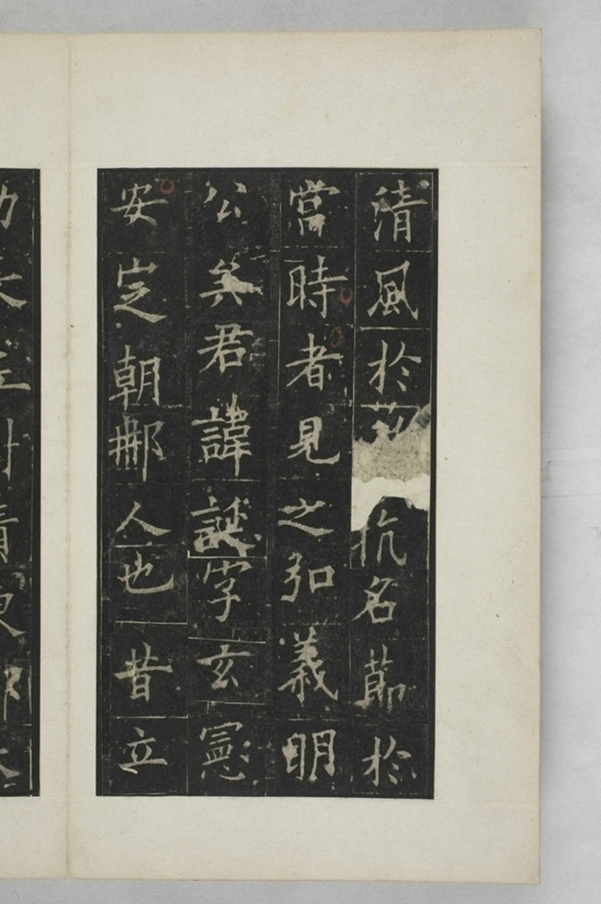 清風於抗名節於
當時者見之弘義明
公矣君諱誕字玄憲
安定朝那人也昔立